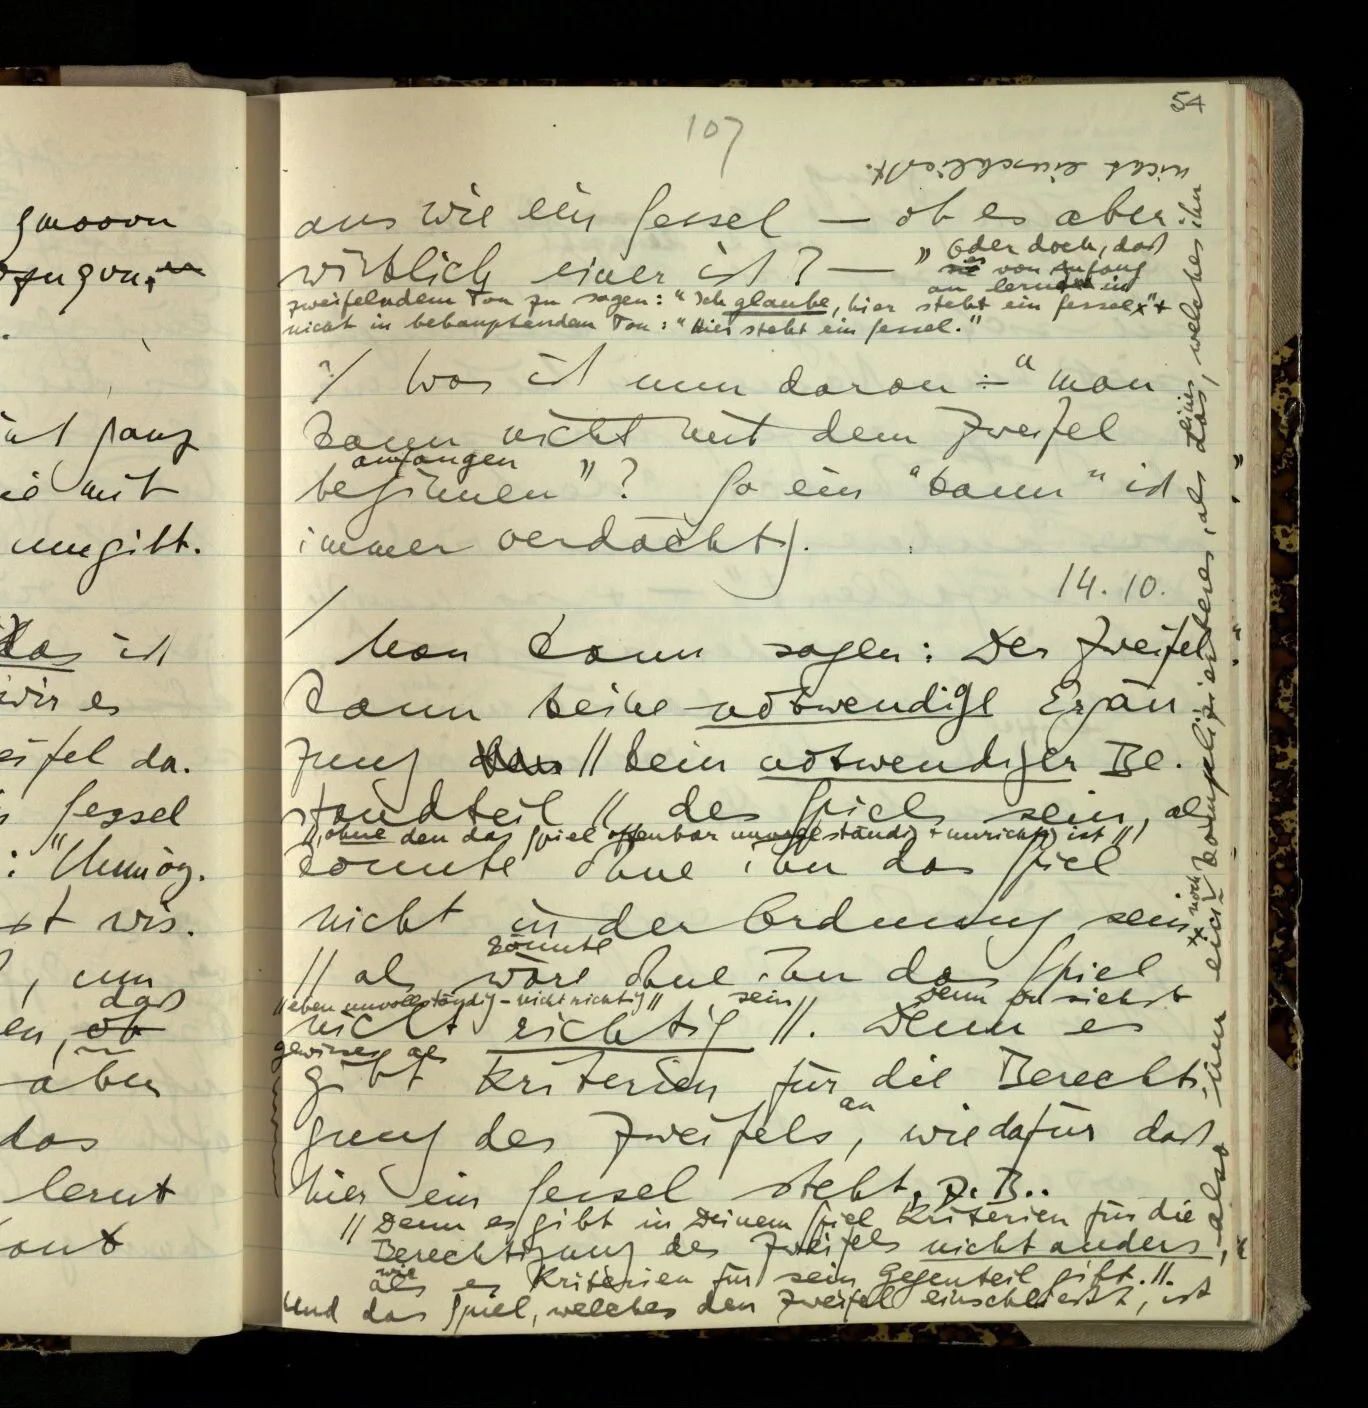 gmoovn
.
ist ganz
ie mit
umgibt.
das ist
wir es
eifel da.
Sessel
: "Unmög.
st wis.
, um
daß
en, ob
aber
das
lernt
54
107
nicht einschließt.
aus wie ein Sessel — ob es aber
wirklich einer ist? — " Oder doch, daß
es von Anfang
an lernt im
zweifelndem Ton zu sagen: "Ich glaube, hier steht ein Sessel" +
nicht in behauptendem Ton: "Hier steht ein Sessel."
?/ Was ist nun daran: "man
kann nicht mit dem Zweifel
anfangen
beginnen"? So ein "kann" ist
immer verdächtig.
14.10.
/
Man kann sagen: Der Zweifel
kann keine notwendige Ergän
zung der // kein notwendiger Be.
standteil // des Spiels sein, als
// ohne den das Spiel offenbar unvollständig + unrichtig ist //,
könnte ohne ihn das Spiel
nicht in der Ordnung sein
könnte
// als wäre ohne ihn das Spiel
// eben unvollständig – nicht richtig // sein Denn Du siehst
nicht richtig //. Denn es
gewisser als
gibt Kriterien für die Berechti
an
gung des Zweifels, wie dafür daß
hier ein Sessel steht, z.B..
// Denn es gibt in Deinem Spiel Kriterien für die
Berechtigung des Zweifels nicht anders,
wie
als es Kriterien für sein Gegenteil gibt. //.
Und das Spiel, welches den Zweifel einschließt, ist
also nur ein komplizierteres, als das, welches ihn
noch
eines